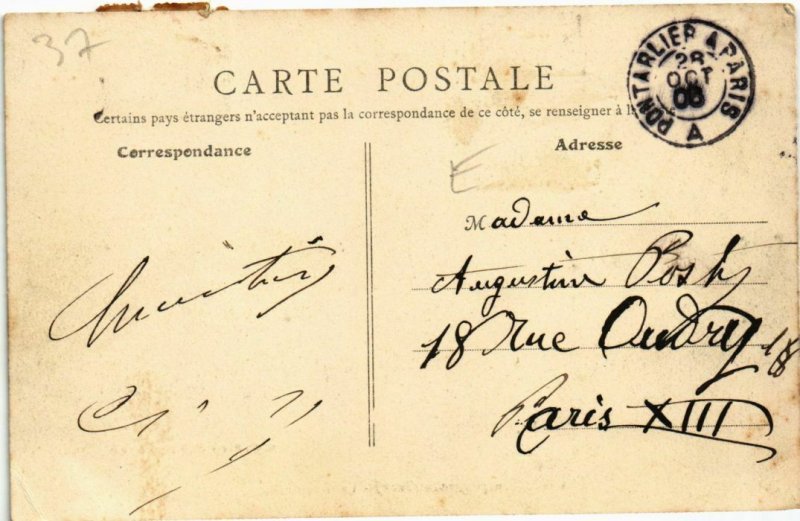 37
CARTE POSTALE
Certains pays étrangers n'acceptant pas la correspondance de ce côté, se renseigner à l
Correspondance
Adresse
PONTARLIER A PARIS
28
OCT
08
A
E
Madame
Augustine
18 Rue Oudry 18
Paris XIII